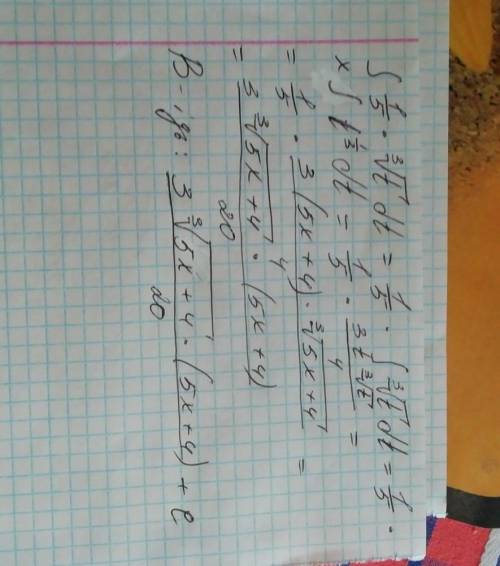 ∫ 1/5 · ∛t dt = 1/5 · ∫ ∛t dt = 1/5 ·
x ∫ t^(1/3) dt = 1/5 · (3t∛t)/4 =
= 1/5 · (3(5x+4) · ∛(5x+4))/4 =
= (3∛(5x+4) · (5x+4))/20
В-ідь: (3∛(5x+4) · (5x+4))/20 + C